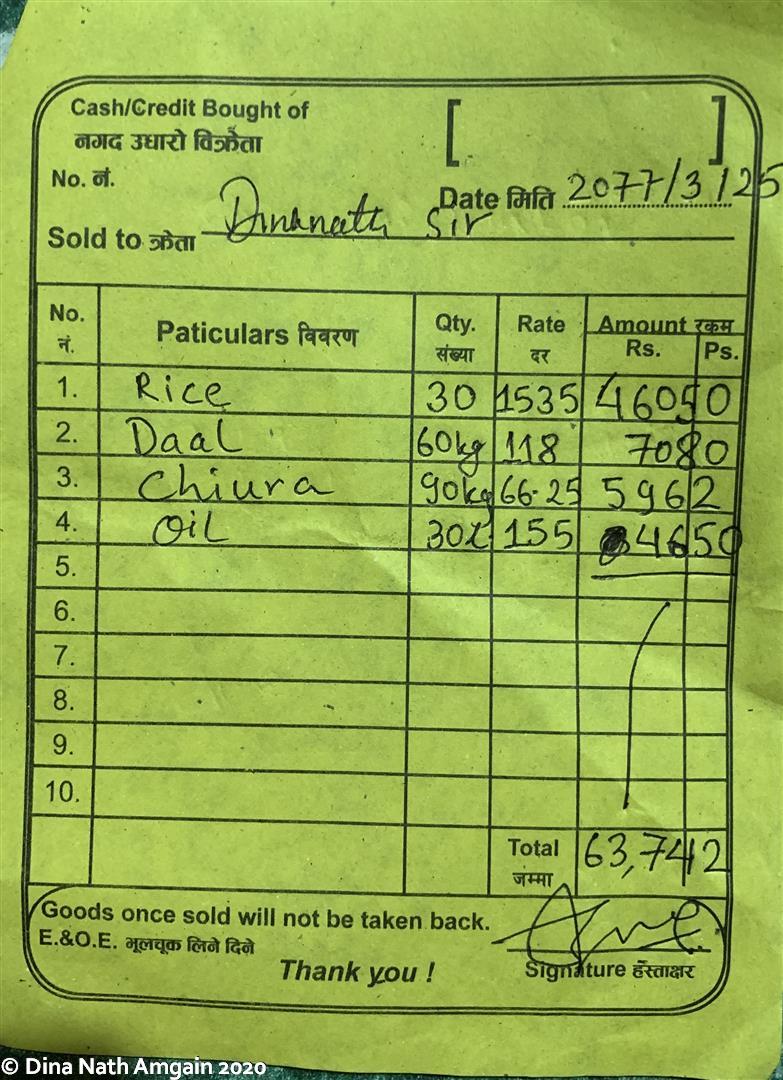 Cash/Credit Bought of [ ]
नगद उधारो विक्रेता
No. नं.
Date मिति 2077/3/25
Sold to क्रेता Dinanath Sir
No. Paticulars विवरण Qty. Rate Amount रकम
नं. संख्या दर Rs. Ps.
1. Rice 30 1535 46050
2. Daal 60kg 118 7080
3. Chiura 90kg 66.25 5962
4. Oil 30 155 4650
5.
6.
7.
8.
9.
10.
Total 63,742
जम्मा
Goods once sold will not be taken back.
E.&O.E. भूलचूक लिने दिने
Thank you !
Signature हस्ताक्षर
© Dina Nath Amgain 2020